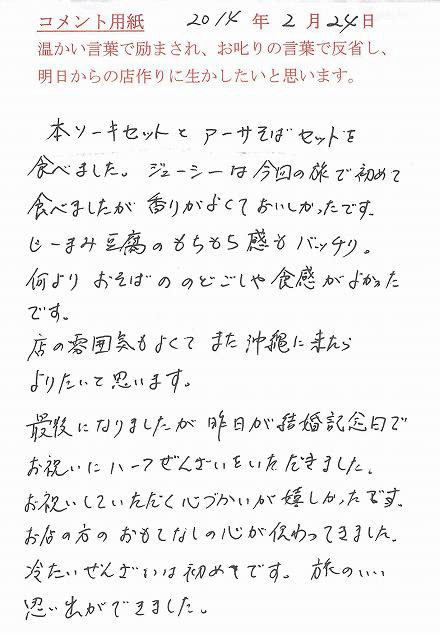 コメント用紙 2014年2月24日
温かい言葉で励まされ、お叱りの言葉で反省し、
明日からの店作りに生かしたいと思います。
本ソーキセットとアーサそばセットを
食べました。ジューシーは今回の旅で初めて
食べましたが香りがよくておいしかったです。
じーまみ豆腐のもちもち感もバッチリ。
何よりおそばののどごしや食感がよかった
です。
店の雰囲気もよくてまた沖縄に来たら
よりたいて思います。
最後になりましたが昨日が結婚記念日で
お祝いにハーフぜんざいをいただきました。
お祝いしていただく心づかいが嬉しかったです。
お店の方のおもてなしの心が伝わってきました。
冷たいぜんざいは初めてです。旅のいい
思い出ができました。